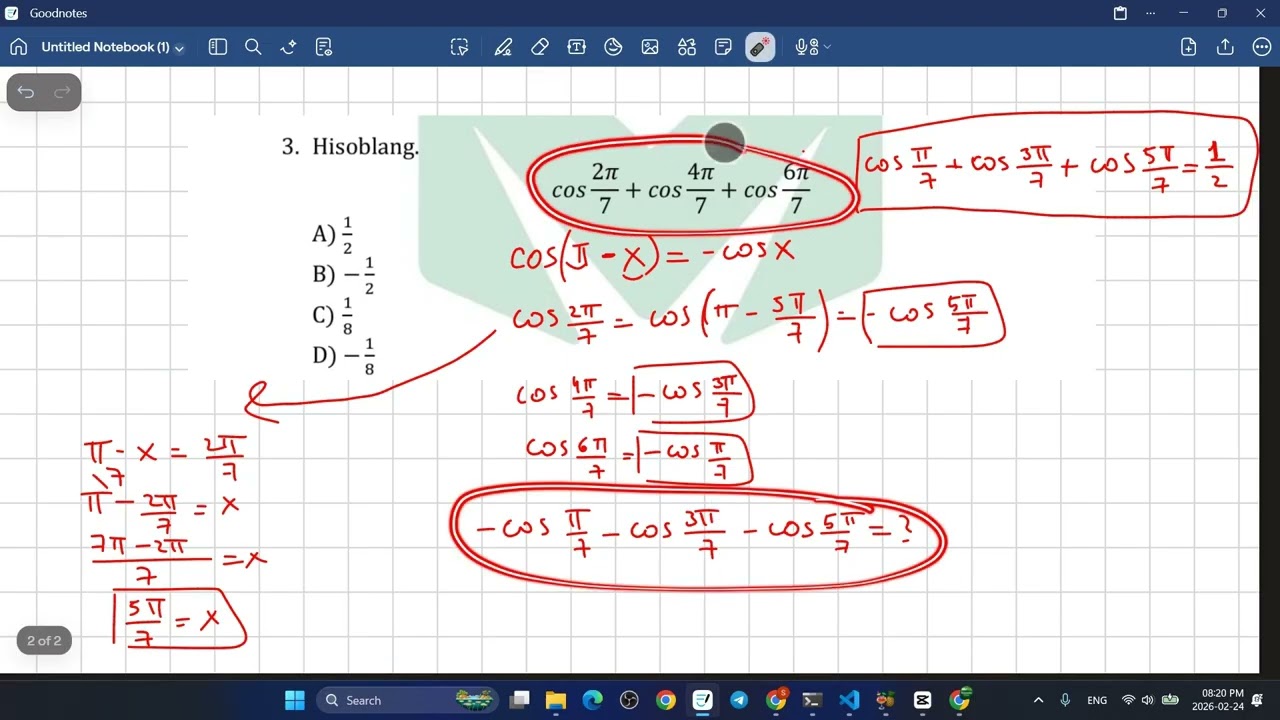 Goodnotes
Untitled Notebook (1)
3. Hisoblang.
cos 2π/7 + cos 4π/7 + cos 6π/7
cos π/7 + cos 3π/7 + cos 5π/7 = 1/2
A) 1/2
B) −1/2
C) 1/8
D) −1/8
cos(π - x) = - cos x
cos 2π/7 = cos(π - 5π/7) = - cos 5π/7
cos 4π/7 = - cos 3π/7
cos 6π/7 = - cos π/7
- cos π/7 - cos 3π/7 - cos 5π/7 = ?
π - x = 2π/7
\7
π - 2π/7 = x
7π - 2π/7 = x
5π/7 = x
2 of 2
Search
5
ENG
08:20 PM
2026-02-24